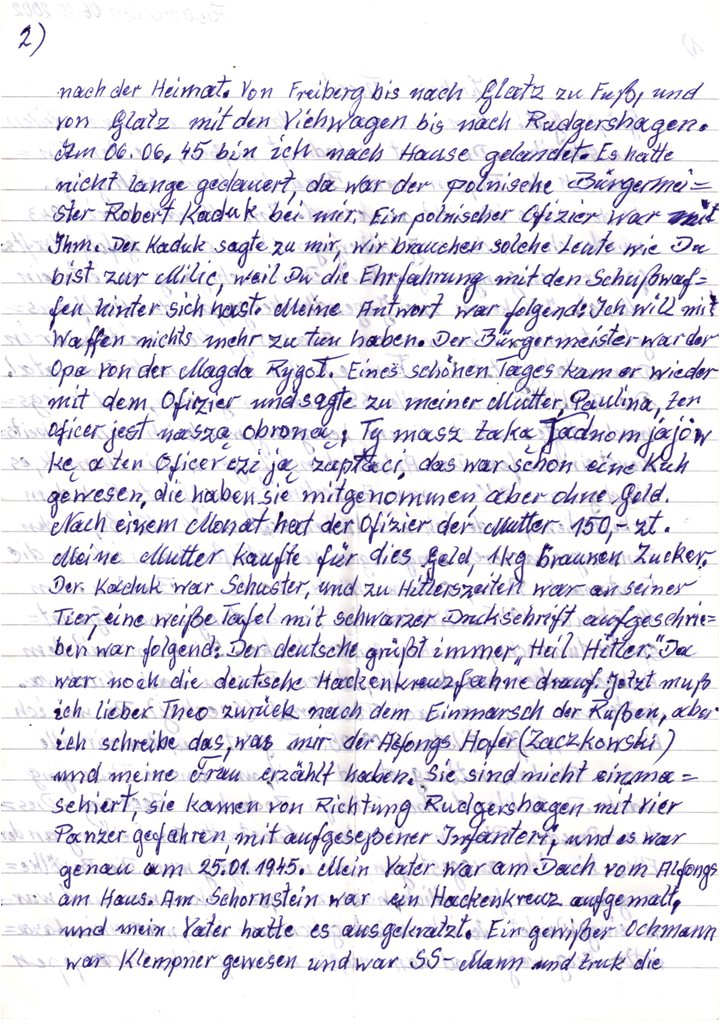 2)
nach der Heimat. Von Freiberg bis nach Glatz zu Fuß, und
von Glatz mit den Viehwagen bis nach Rudgershagen.
Am 06.06.45 bin ich nach Hause gelandet. Es hatte
nicht lange gedauert, da war der polnische Bürgermei=
ster Robert Kaduk bei mir. Ein polnischer Ofizier war mit
Ihm. Der Kaduk sagte zu mir, wir brauchen solche Leute wie Du
bist zur Milic, weil Du die Ehrfahrung mit den Schußwaf=
fen hinter sich hast. Meine Antwort war folgend: Ich will mit
Waffen nichts mehr zu tuen haben. Der Bürgermeister war der
Opa von der Magda Rygoł. Eines schönen Tages kam er wieder
mit dem Ofizier und sagte zu meiner Mutter, Paulina, ten
Oficer jest naszą obroną; Ty masz taką jadnom jajów
kę a ten Oficer czi ją zapłaci, das war schon eine Kuh
gewesen, die haben sie mitgenommen, aber ohne Geld.
Nach einem Monat hat der Ofizier der Mutter 150,- zt.
Meine Mutter kaufte für dies Geld, 1 kg Braunen Zucker.
Der Kaduk war Schuster, und zu Hitlerszeiten war an seiner
Tier, eine weiße Tafel mit schwarzer Druckschrift aufgeschrie=
ben war folgend: Der deutsche grüßt immer „Heil Hitler." Da
war noch die deutsche Hackenkreuzfahne drauf. Jetzt muß
ich lieber Theo zurück nach dem Einmarsch der Rußen, aber
ich schreibe das, was mir der Alfongs Hofer (Zaczkowski)
und meine Frau erzählt haben. Sie sind nicht einma=
schiert, sie kamen von Richtung Rudgershagen mit vier
Panzer gefahren, mit aufgeseßener Infanteri, und es war
genau am 25.01.1945. Mein Vater war am Dach vom Alfongs
am Haus. Am Schornstein war ein Hackenkreuz aufgemalt,
und mein Vater hatte es ausgekratzt. Ein gewißer Ochmann
war Klempner gewesen und war SS-Mann und truk die